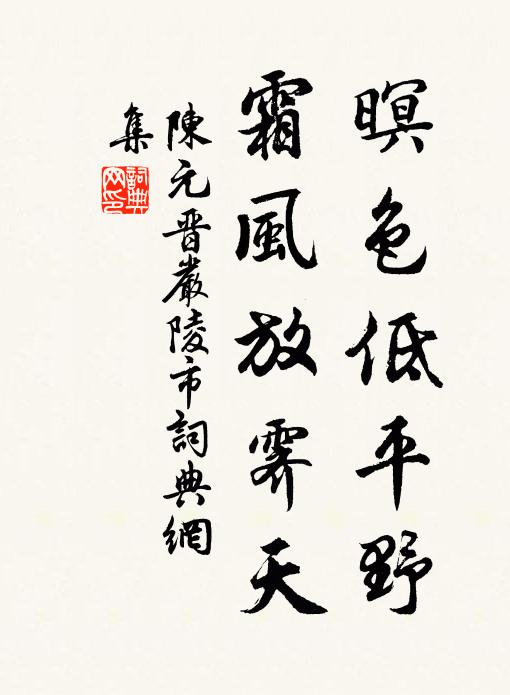 暝色低平野
霜風放霽天
陳元晋嚴陵市詞典網
集
詞典
网印